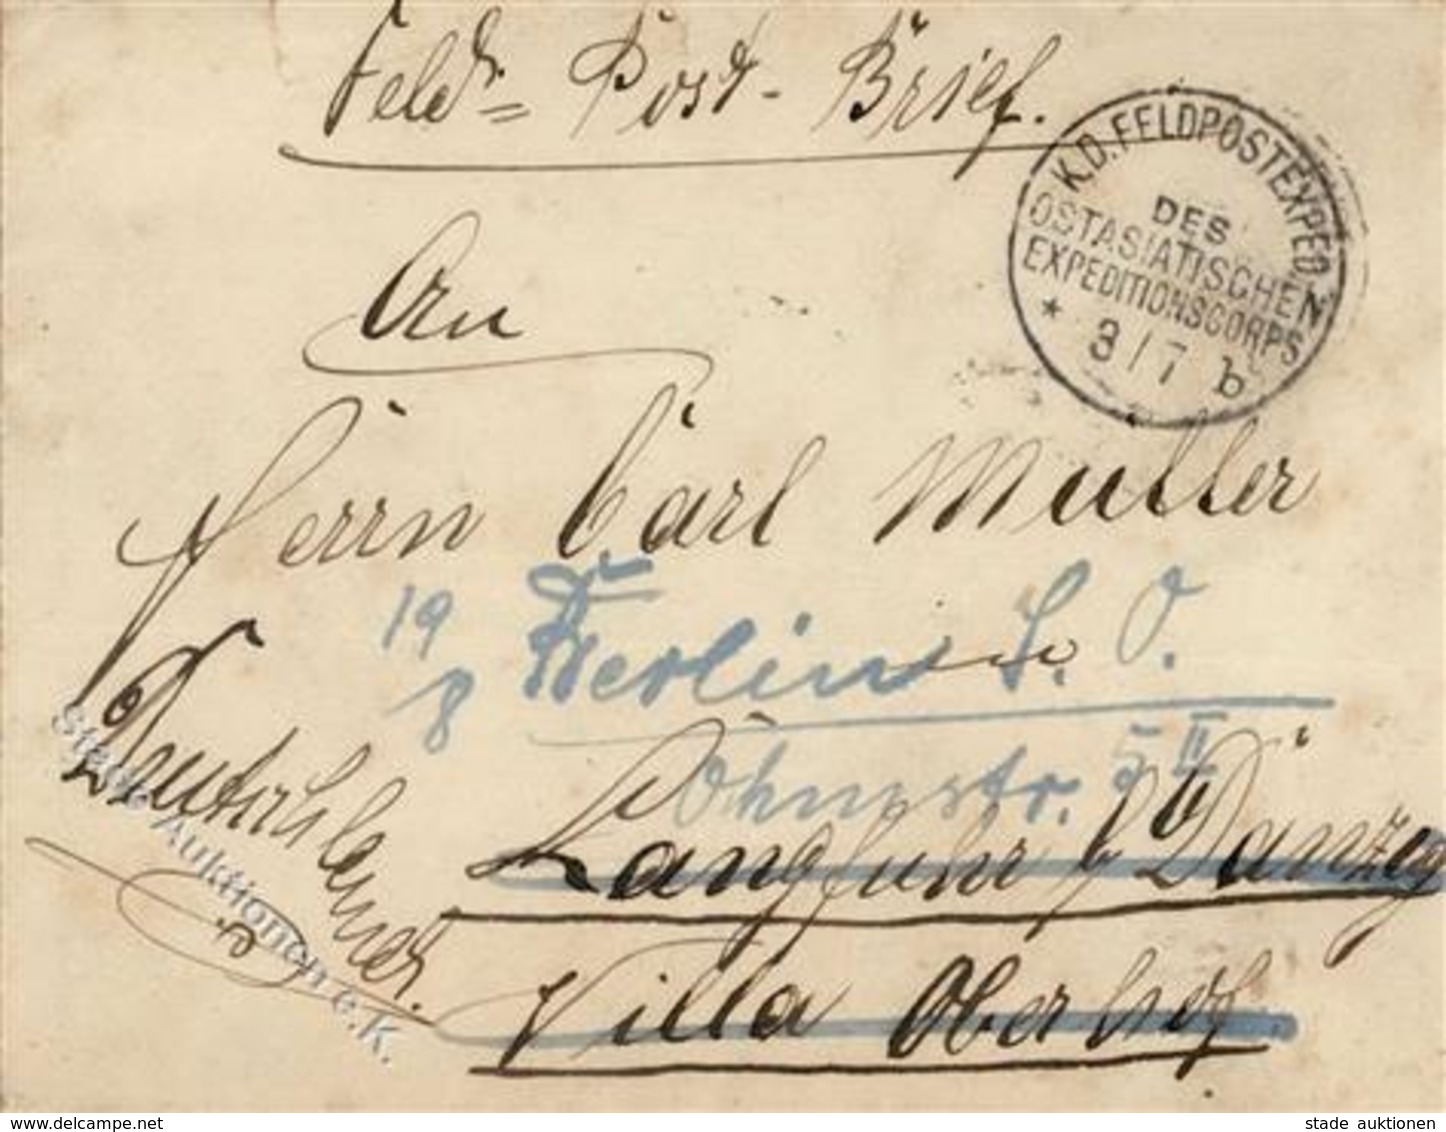 Feld-Post-Brief.
K.D. FELDPOSTEXPED
DES
OSTASIATISCHEN
EXPEDITIONSCORPS
* 3/7 b
An
Herrn Carl Müller
in
19/8
Berlin S. O.
Ohmstr. 5 II
Langfuhr b/ Danzig
Villa Oberhof
Deutschland.
Stade Auktionen e.K.
www.delcampe.net
stade auktionen